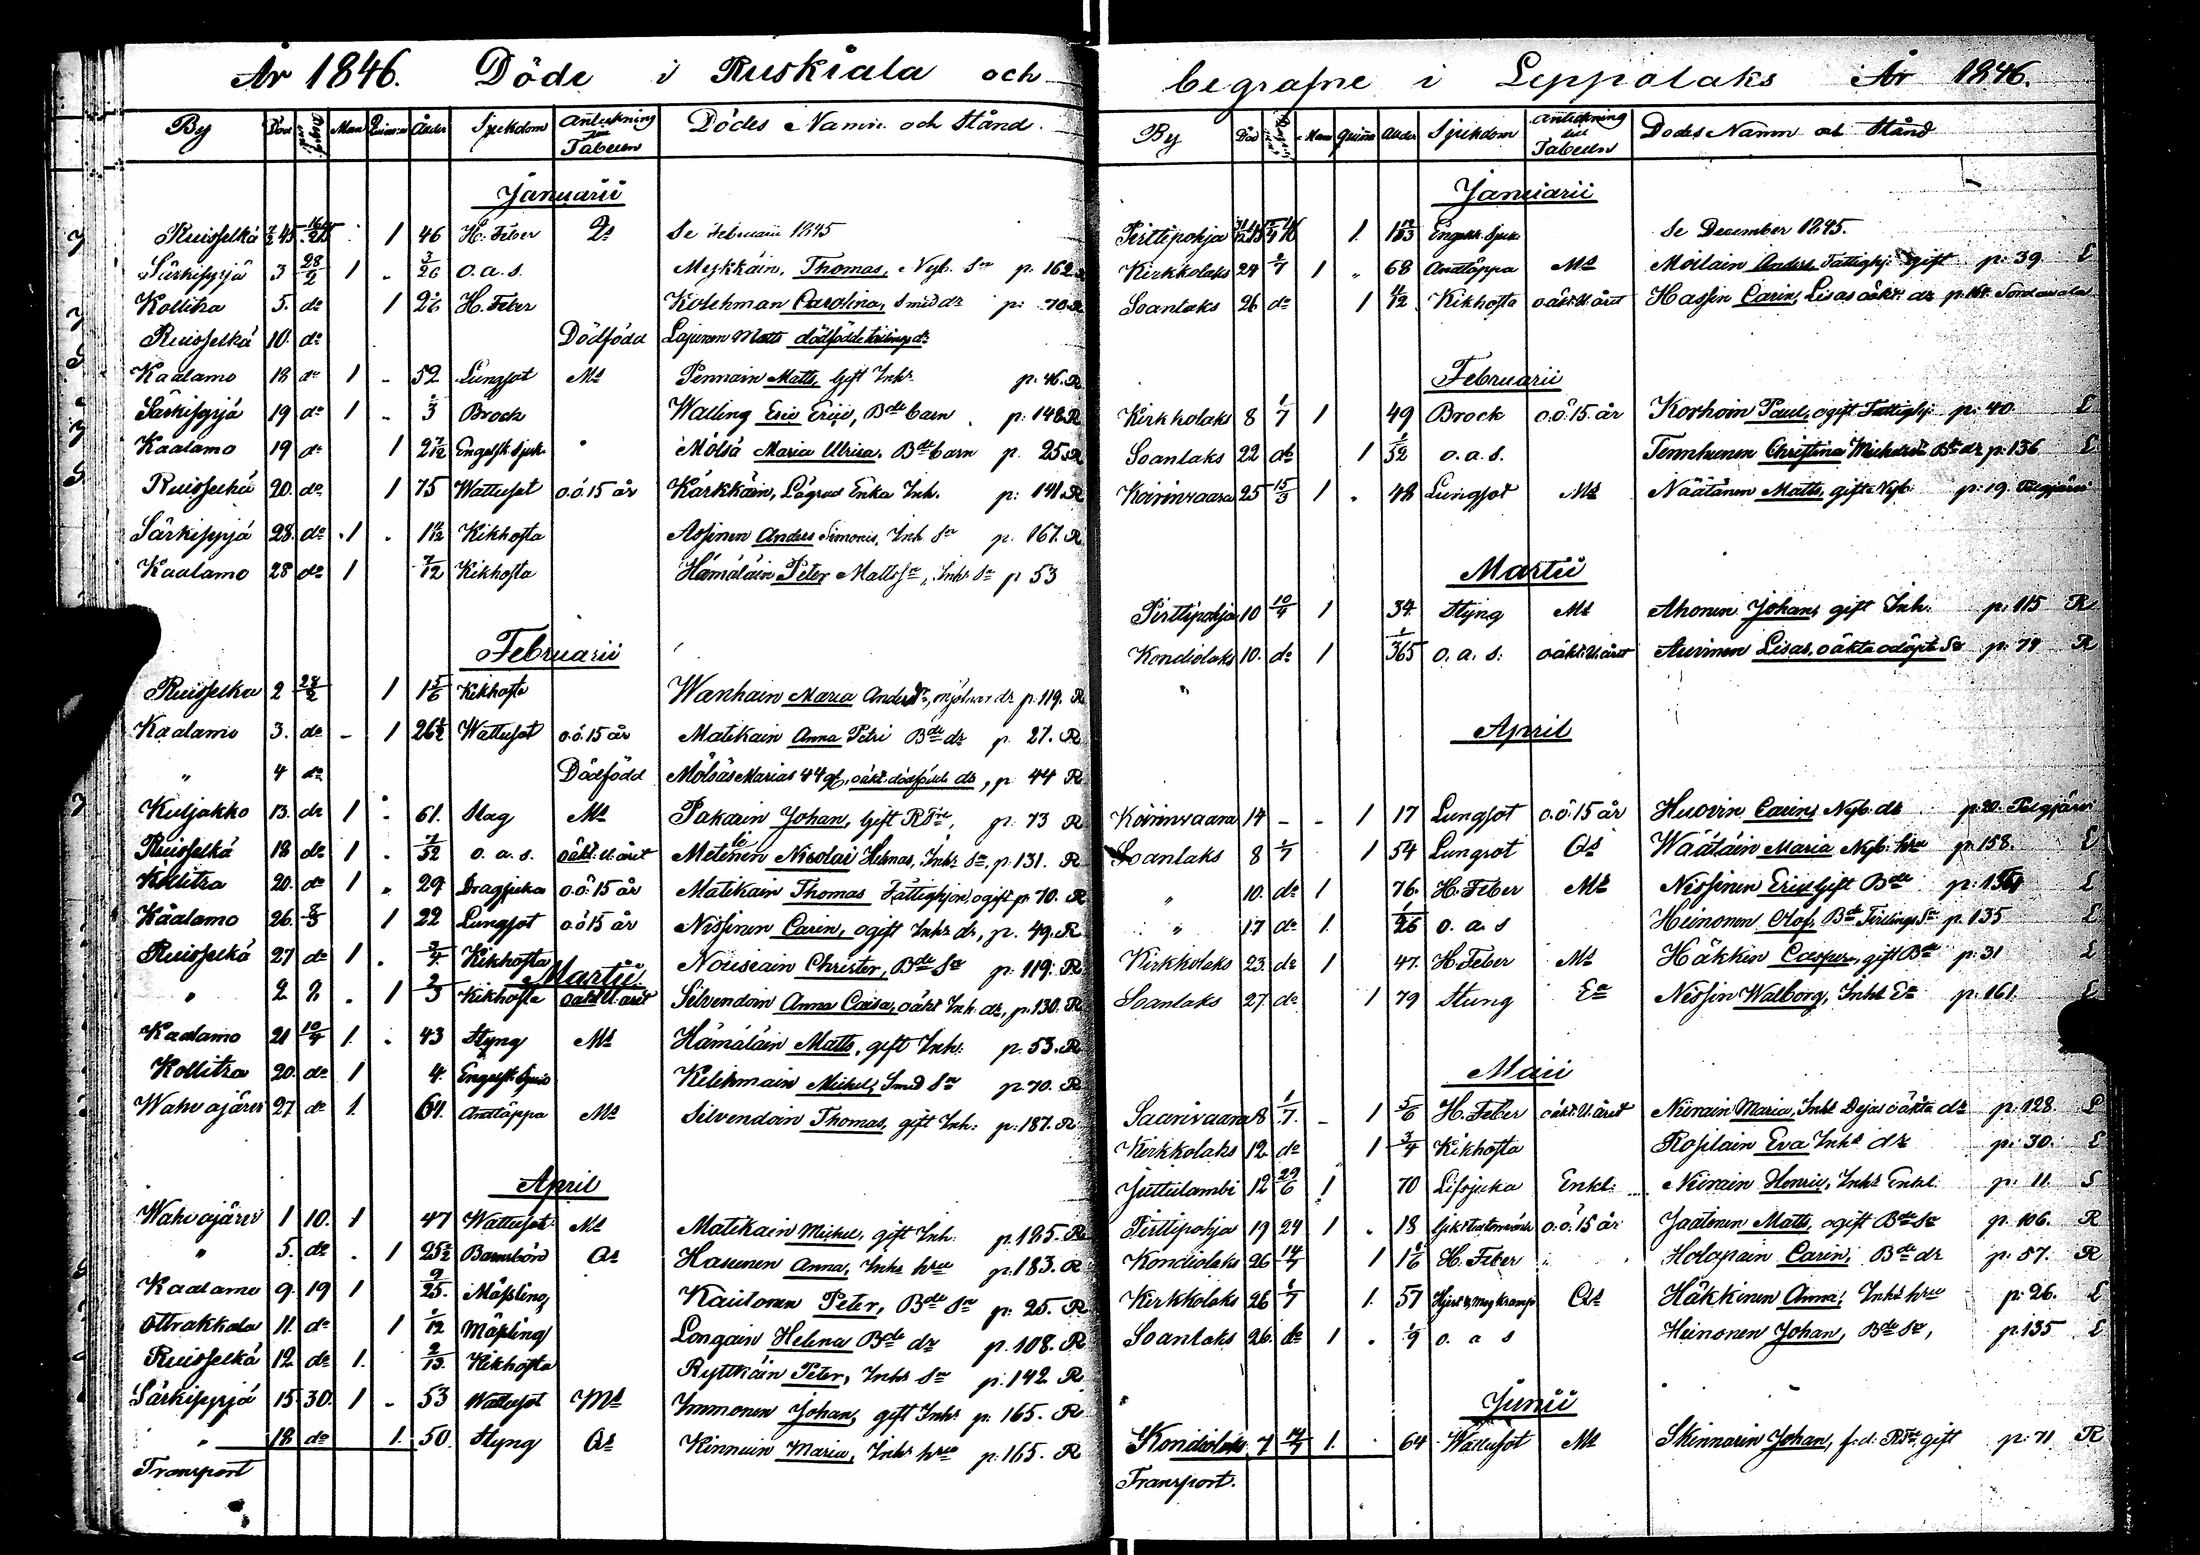 År 1846. Döde i Ruskiala och
By Död Man Quinnor Ålder Sjukdom Anteckning till Tabellen Dödes Namn och Stånd.
Januarii
Ruisselkä 1 46 H. Feber Qs Se Februarii 1845
Särkisyrjä 3 28/2 1 3/26 o.a.s. Mykkäin, Thomas, Nyb. Sn p. 162. R
Kollitza 5. do 1 H. Feber Kolehman Carolina, Smed dr p. 70. R
Ruisselkä 10. do Dödfödd Lajunen Matts dödfödde tvillings dr
Kaalamo 18 do 1 52 Lungsot Ms Pennain Matts, Gift Inhs p. 46. R
Särkisyrjä 19 do 1 1/3 Brock Walling Eric Erici, Bde barn p. 148 R
Kaalamo 19 do 1 2 7/12 Engelsk sjuk. Mölsä Maria Ulrica. Bde barn p. 25 R
Ruisselkä 20. do 1 75 Wattusot o.ö. 15 år Kärkkäin, Enka Inh. p. 141. R
Särkisyrjä 28. do 1 Kikhosta Assinen Anders Simonis, Inh Sn p. 167. R
Kaalamo 28 do 1 7/12 Kikhosta Hämäläin Peter Matts Sn, Inhs Sn p 53
Februarii
Ruisselkä 2 28/2 1 1 5/6 Kikhosta Wanhain Maria dr p. 119. R
Kaalamo 3. do 1 26 1/2 Wattusot o.ö. 15 år Matikain Anna Petri Bde dr p. 27. R
" 4 do Dödfödd Mölsäs Marias oäkt. dödfödde dr, p. 44 R
Kuljakko 13. do 1 61. Slag Ms Pakarin Johan, Gift p. 73 R
Ruisselkä 18 do 1 7/52 o.a.s. oäkt. U. året Metinen Nicolai Inhs Sn, p. 131. R
Kollitza 20. do 1 29. Dragsjuka o.ö. 15 år Matikain Thomas Fattighjon ogift p. 70. R
Kaalamo 26. 8/3 1 22 Lungsot o.ö 15 år Nissinen Carin, ogift Inhs dr, p. 49. R
Ruisselkä 27 do 1 3/4 Kikhosta Nousiain Christer, Bde Sn p. 119. R
Martii.
" 2 2 1 2/3 Kikhosta oäkt U. året Silvendoin Anna Caisa, oäkt Inh. dr, p. 130. R
Kaalamo 21 10/4 1. 43 Styng Ms Hämäläin Matts, gift Inh. p. 53. R
Kollitza 20. do 1 4. Engelsk sjuk Kilikmain Michel, Smed Sn p. 70. R
Wahvajärvi 27. do 1. 64. Andtäppa Ms Silvendoin Thomas, gift Inh. p. 187. R
April
Wahvajärvi 1 10. 1 47 Wattusot Ms Matikain Michel, gift Inh. p. 185. R
" 5. do 1 25 1/2 Barnsbörd Qs Hasunen Anna, Inhs hru p. 183. R
Kaalamo 9. 19 1 9/25. Mässling Kautonen Peter, Bde Sn p. 25. R
Ottrakkala 11. do 1 1/12 Mässling Longain Helena Bde dr p. 108. R
Ruisselkä 12. do 1. 2/13. Kikhosta Ryttkäin Peter, Inhs Sn p. 142 R
Särkisyrjä 15. 30. 1 53 Wattusot Ms Immonen Johan, gift Inhs p. 165. R
" 18 do 1. 50. Styng Qs Kinnuin Maria, Inhs hru p. 165. R
Transport
begrafne i Leppälaks År 1846.
By Död Man Quinna Ålder Sjukdom Anteckning till Tabellen Dödes Namn och Stånd
Januarii
Pirttipohja 1. Engelsk sjuk. Se December 1845.
Kirkkolaks 24 2/7 1 68 Andtäppa Ms Moilain Anders Fattighj. gift p. 39 L
Soanlaks 26 do 1 Kikhosta oäkt. U. året Hassin Carin, Lisas oäkt. dr Sordavala
Februarii
Kirkkolaks 8 1/7 1 49 Brock o.ö. 15. år Korhoin Paul, ogift Fattighj. p. 40 L
Soanlaks 22 do 1 1/52 o.a.s. Tenhunen Christina Bde dr p. 136 L
Koirinvaara 25 15/3 1 48 Lungsot Ms Näätänen Matts, gift Nyb. p. 19. Pelgjärvi
Martii
Pirttipohja 10 10/4 1 34. Styng Ms Ahonen Johan, gift Inh. p. 115 R
Kondiolaks 10. do 1 1/365 o.a.s. oäkt. U. året Auvinen Lisas, oäkta odöpte So p. 79 R
April
Koirinvaara 14 - - 1 17 Lungsot o.ö. 15 år Huovin Carin, Nyb. dr p. 20. Pelgjärvi
Soanlaks 8 1/7 1 54 Lungsot Qs Wäätäin Maria Nyb. hru p. 158. L
" 10. do 1 76. H. Feber Ms Nissinen Eric Gift Bde L
" 17 do 1. 1/26 o. a. s Heinonen Olof, Bde Tvillings Sn p. 135 L
Kirkkolaks 23. do 1 47. H. Feber Ms Häkkin Casper, gift Bde p. 31 L
Soanlaks 27. do 1 79 Stung Ea Nissin Walborg, Inhs Ea p. 161. L
Maii
Saarivaara 8 1/7. 1 5/6 H. Feber oäkt. U. året Niirain Maria, Inhs Dejas oäkta dr p. 128 L
Kirkkolaks 12. do 1 3/4 Kikhosta Rosilain Eva Inhs dr p. 30. L
Juttulambi 12 29/6 1 70 Lifsjuka Enkl. Niirain Henric, Inhs Enkl. p. 11. S
Pirttipohja 19 24 1 18 o.ö. 15 år Jaatinen Matts, ogift Bde Sn p. 106. R
Kondiolaks 26 14/7 1 1 1/6 H. Feber Holopain Carin, Bde dr p. 57. R
Kirkkolaks 26 1/7 1. 57 Qs Häkkinen Anna, Inhs hru p. 26. L
Soanlaks 26. do 1 1/9 o. a s Heinonen Johan, Bde Sn, p. 135 L
Junii
Kondiolaks 7 14/7 1. 64 Wattusot Ms Skinnarin Johan, f.d. gift p. 71 R
Transport.